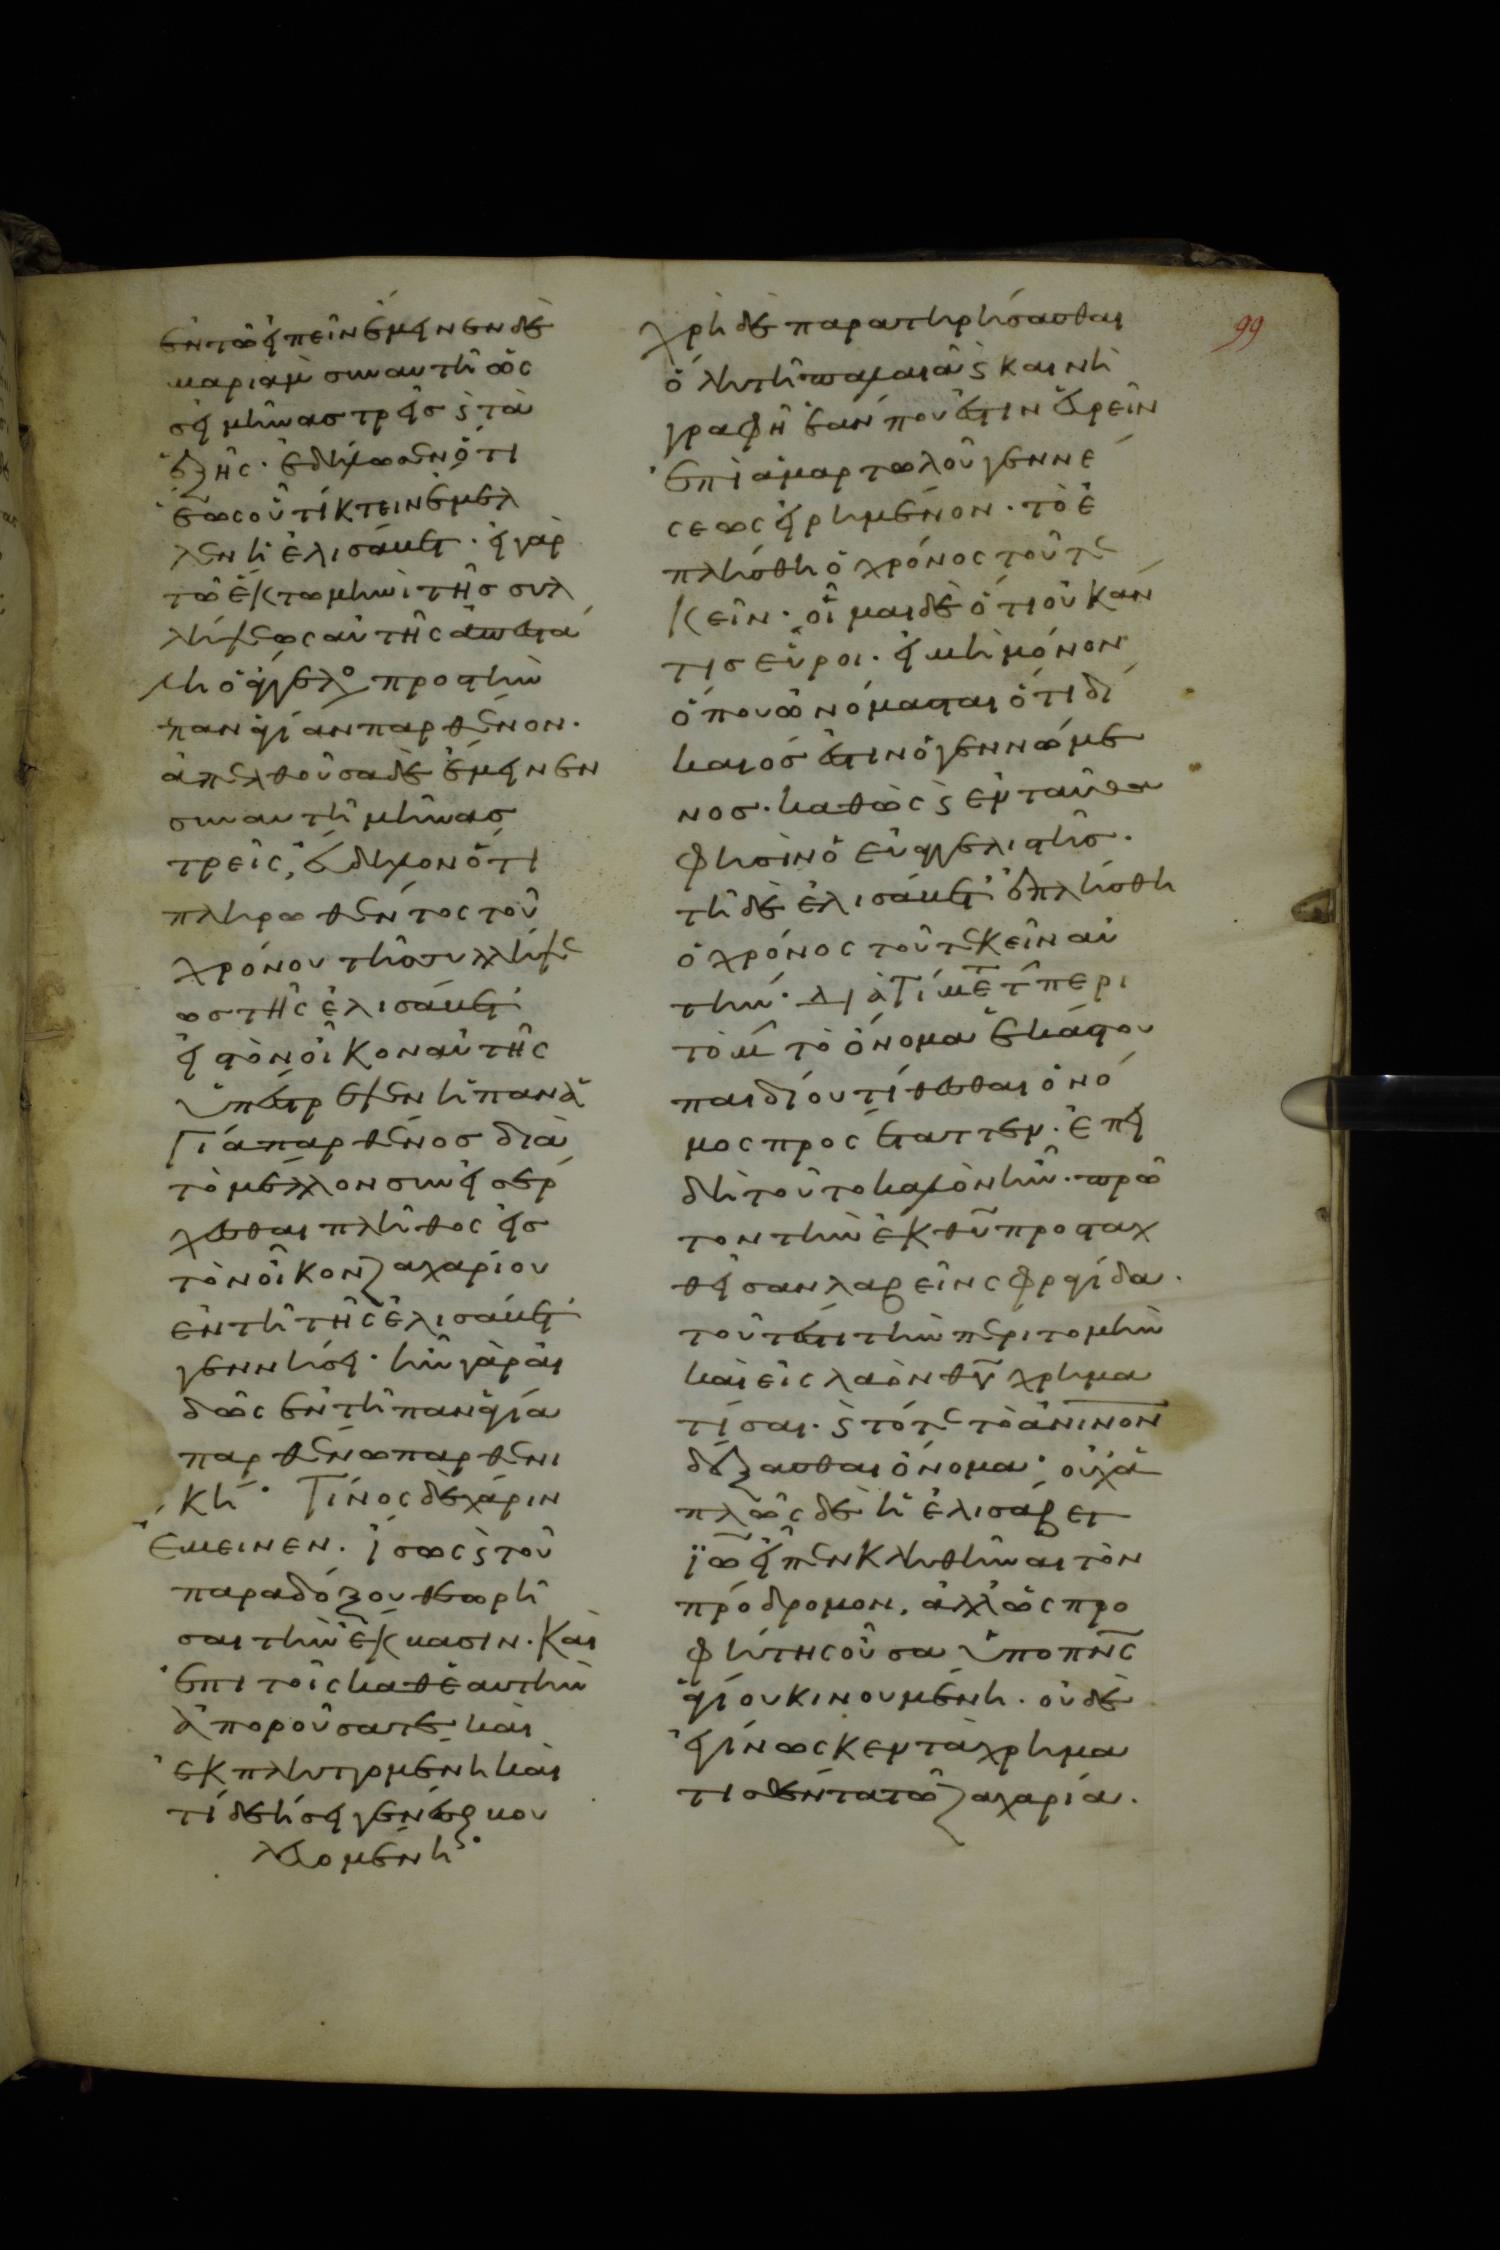 ἐν τῶ εἰπεῖν ἔμεινεν δὲ
μαριὰμ σὺν αὐτῆ ὡς
εἰ μῆνας τρεῖς ϛ τὰ
ἑξῆς· ἐδήλωσεν ὅτι
ἕως οὗ τίκτειν ἔμελ
λεν ἡ ἐλισάβετ· ἐν γὰρ
τῶ ἕκτω μηνὶ τῆς συλ
λήψεως αὐτῆς ἀπεστά
λη ὁ ἄγγελος προς τὴν
παναγίαν παρθένον.
ἀπελθοῦσα δὲ ἔμεινεν
σὺν αὐτῆ μῆνας
τρεῖς, δηλονότι
πληρωθέντος τοῦ
χρόνου τῆς συλλήψε
ως τῆς ἐλισάβετ
εἰς τὸν οἶκον αὐτῆς
ὑπέστρεψεν ἡ πανα
γία παρθένος διὰ
τὸ μέλλον συνεισέρ
χεσθαι πλῆθος εἰς
τὸν οἶκον ζαχαρίου
ἐν τῆ τῆς ἐλισάβετ
γεννήσει· ἦν γὰρ αἰ
δὼς ἐν τῆ παναγία
παρθένω παρθενι
κή· Τίνος δὲ χάριν
ἔμεινεν. ἴσως ϛ τοῦ
παραδόξου θεωρῆ
σαι τὴν ἔκβασιν. Καὶ
ἐπὶ τοῖς καθ' ἑαυτὴν
ἀποροῦσα τὲ καὶ
ἐκπληττομένη καὶ
τί δεήσει γενέσθαι βου
λευομένη·
99
χρὴ δὲ παρατηρήσασθαι
ὅλη τῆ παλαιᾶ ϛ καινῆ
γραφῆ ἐάν που ἔστιν εὑρεῖν
ἐπὶ ἁμαρτωλοῦ γεννέ
σεως εἰρημένον· τὸ ἐ
πλήσθη ὁ χρόνος τοῦ τε
κεῖν· οἶμαι δὲ ὅτι οὐκ ἄν
τις εὕροι· εἰ μὴ μόνον
ὅπου ὠνόμασται ὅτι δί
καιός ἐστιν ὁ γεννώμε
νος· καθὼς ϛ ἐνταῦθα
φησὶν ὁ εὐαγγελιστής.
τῆ δὲ ἐλισάβετ ἐπλήσθη
ὁ χρόνος τοῦ τεκεῖν αὐ
τήν· Διὰ Τί μετ τ περι
τομ τὸ ὄνομα ἑκάστου
παιδίου τίθεσθαι ὁ νό
μος προςέταττεν· ἐπει
δὴ τοῦτο καλὸν ἦν· πρῶ
τον τὴν ἐκ θῦ προσταχ
θεῖσαν λαβεῖν σφραγίδα.
τοῦτέστι τὴν περιτομὴν
καὶ εἰς λαὸν θῦ χρημα
τίσαι· ϛ τότε τὸ ἀνινον
δέξασθαι ὄνομα· οὐχ ἁ
πλῶς δὲ ἡ ἐλισάβετ
ϊω εἶπεν κληθῆναι τὸν
πρόδρομον, ἀλλ' ὡς προ
φῆτης οὖσα ὑπο πνς
ἁγίου κινουμένη· οὐδὲ
γίνωσκεν τὰ χρημα
τισθέντα τῶ ζαχαρία.